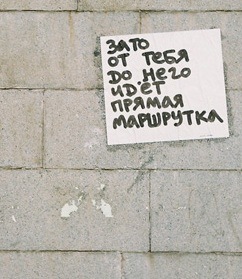 ЗАТО
ОТ ТЕБЯ
ДО НЕГО
ИДЁТ
ПРЯМАЯ
МАРШРУТКА